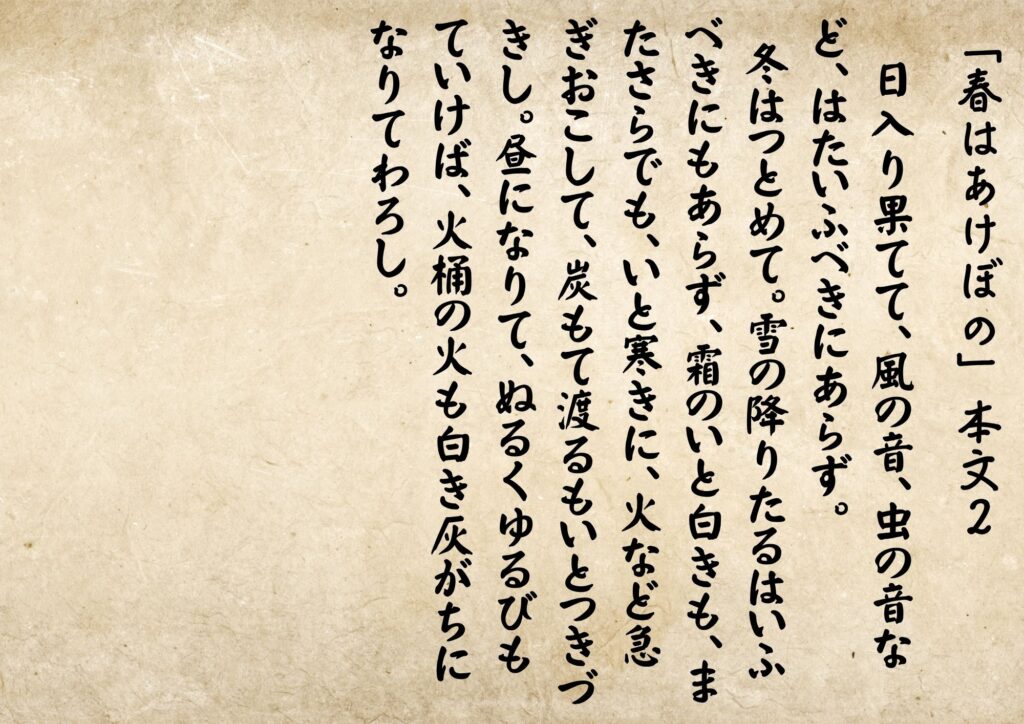 「春はあけぼの」本文2
日入り果てて、風の音、虫の音な
ど、はたいふべきにあらず。
冬はつとめて。雪の降りたるはいふ
べきにもあらず、霜のいと白きも、ま
たさらでも、いと寒きに、火など急
ぎおこして、炭もて渡るもいとつきづ
きし。昼になりて、ぬるくゆるびも
ていけば、火桶の火も白き灰がちに
なりてわろし。